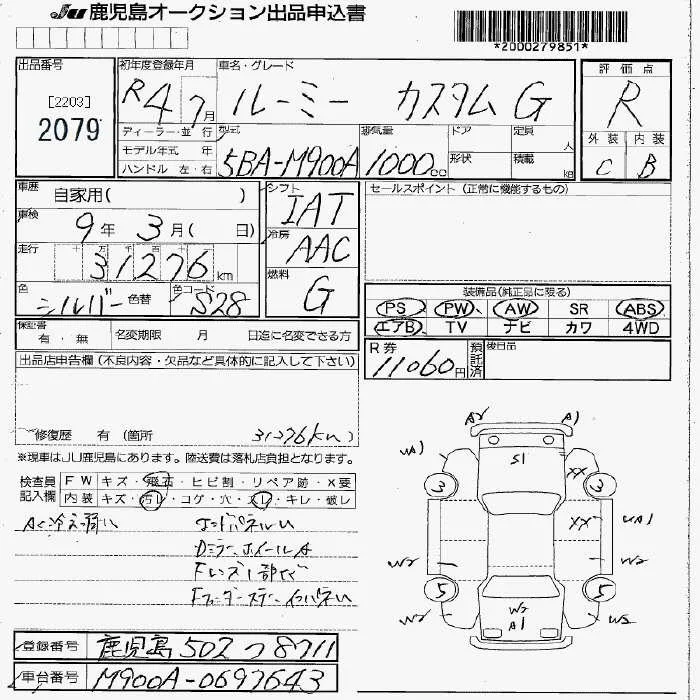 JU 鹿児島オークション出品申込書
*2000279851*
出品番号
[2203]
2079
初年度登録年月
R4 7月
車名・グレード
ルーミー カスタム G
評価点
R
外装 内装
C B
ディーラー・並行
モデル年式 年
ハンドル 左・右
型式
5BA-M900A
排気量
1000cc
ドア
形状
定員 人
積載 kg
車歴
自家用( )
車検
9年 3月( 日)
走行
十 万 千 百 十
31276km
色
シルバー 色替
色コード
S28
シフト
IAT
冷房
AAC
燃料
G
セールスポイント (正常に機能するもの)
装備品(純正品に限る)
PS PW AW SR ABS
エアB TV ナビ カワ 4WD
保証書
有・無
名変期限 月 日迄に名変できる方
R券
11060円
預託済
後日品
出品店申告欄 (不良内容・欠品など具体的に記入して下さい)
修復歴 有 (箇所
31276km)
※現車はJU鹿児島にあります。陸送費は落札店負担となります。
検査員記入欄
FW キズ・飛石・ヒビ割・リペア跡・×要
内装 キズ・汚レ・コゲ・穴・スレ・キレ・破レ
AC冷え弱い
エンドパネルU
Dミラー、ホイールA
Fレンズ1部ヒビ
A2 A1
UA1 S1 XX
3 3
XX UA1
W2 W2
5 5
W2 W2 A1 W2
登録番号
鹿児島 502 つ 8711
車台番号
M900A-0697643